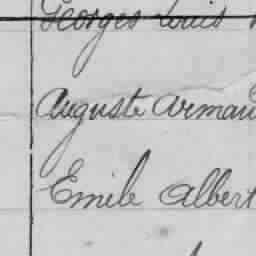 Georges Louis
Auguste Arman
Emile Albert